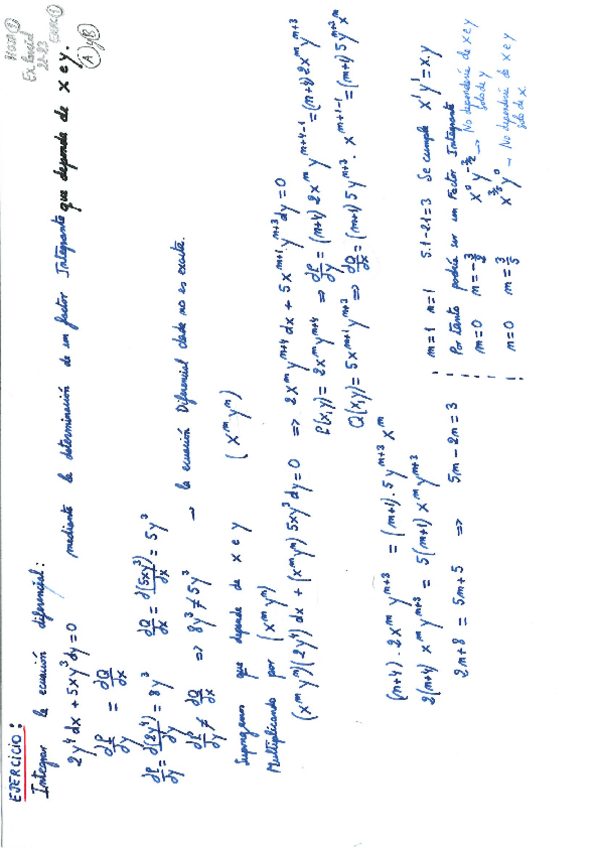 EJERCICIO:
Integrar la ecuación diferencial:
2y⁴dx + 5xy³dy = 0 mediante la determinación de un factor Integrante que dependa de x e y.
∂P/∂y = ∂Q/∂x
∂P/∂y = ∂(2y⁴)/∂y = 8y³ ∂Q/∂x = ∂(5xy³)/∂x = 5y³
∂P/∂y ≠ ∂Q/∂x ⇒ 8y³ ≠ 5y³ → la ecuación Diferencial dada no es exacta.
Supongamos que depende de x e y (xᵐyⁿ)
Multiplicando por (xᵐyⁿ)
(xᵐyⁿ)(2y⁴)dx + (xᵐyⁿ)5xy³dy = 0 ⇒ 2xᵐyⁿ⁺⁴dx + 5xᵐ⁺¹yⁿ⁺³dy = 0
P(x,y) = 2xᵐyⁿ⁺⁴ ⇒ ∂P/∂y = (n+4)2xᵐyⁿ⁺⁴⁻¹ = (n+4)2xᵐyⁿ⁺³
Q(x,y) = 5xᵐ⁺¹yⁿ⁺³ ⇒ ∂Q/∂x = (m+1)5yⁿ⁺³·xᵐ⁺¹⁻¹ = (m+1)5yⁿ⁺³xᵐ
(n+4)·2xᵐyⁿ⁺³ = (m+1)·5yⁿ⁺³xᵐ
2(n+4)xᵐyⁿ⁺³ = 5(m+1)xᵐyⁿ⁺³
2n+8 = 5m+5 ⇒ 5m-2n = 3
m=1 n=1 5.1-2.1=3 Se cumple x¹y¹=x.y
Por tanto podría ser un Factor Integrante
m=0 n=-3/2 x⁰y^(-3/2) → No dependería de x e y
solo de y
n=0 m=3/5 x^(3/5)y⁰ → No dependería de x e y
solo de x.